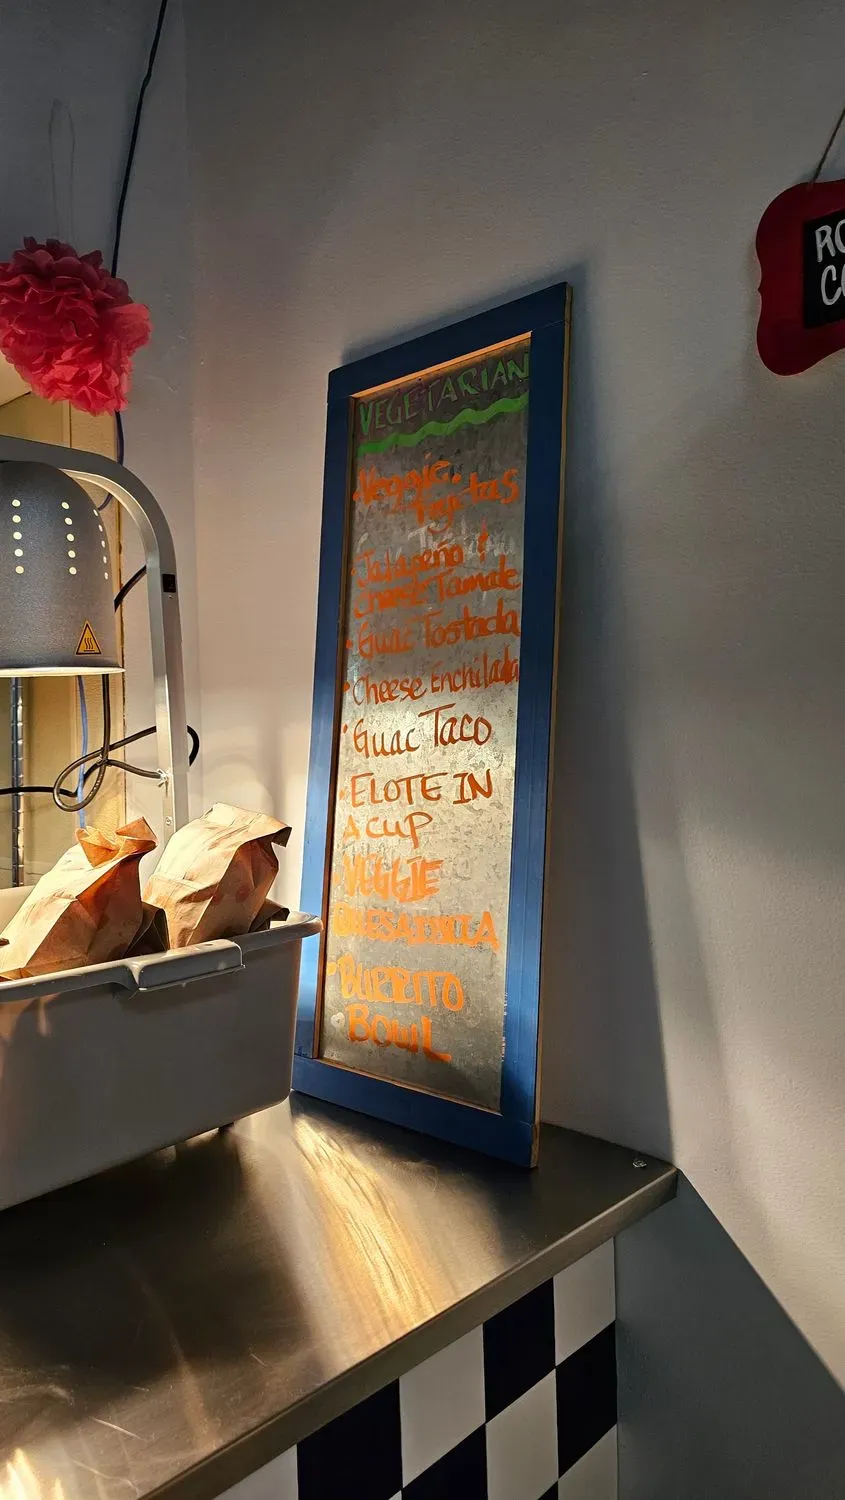 VEGETARIAN
• Veggie
Fajitas
• Jalapeño &
Cheese Tamale
• Guac Tostada
• Cheese Enchilada
• Guac Taco
• ELOTE IN
A CUP
• VEGGIE
QUESADILLA
• BURRITO
BOWL